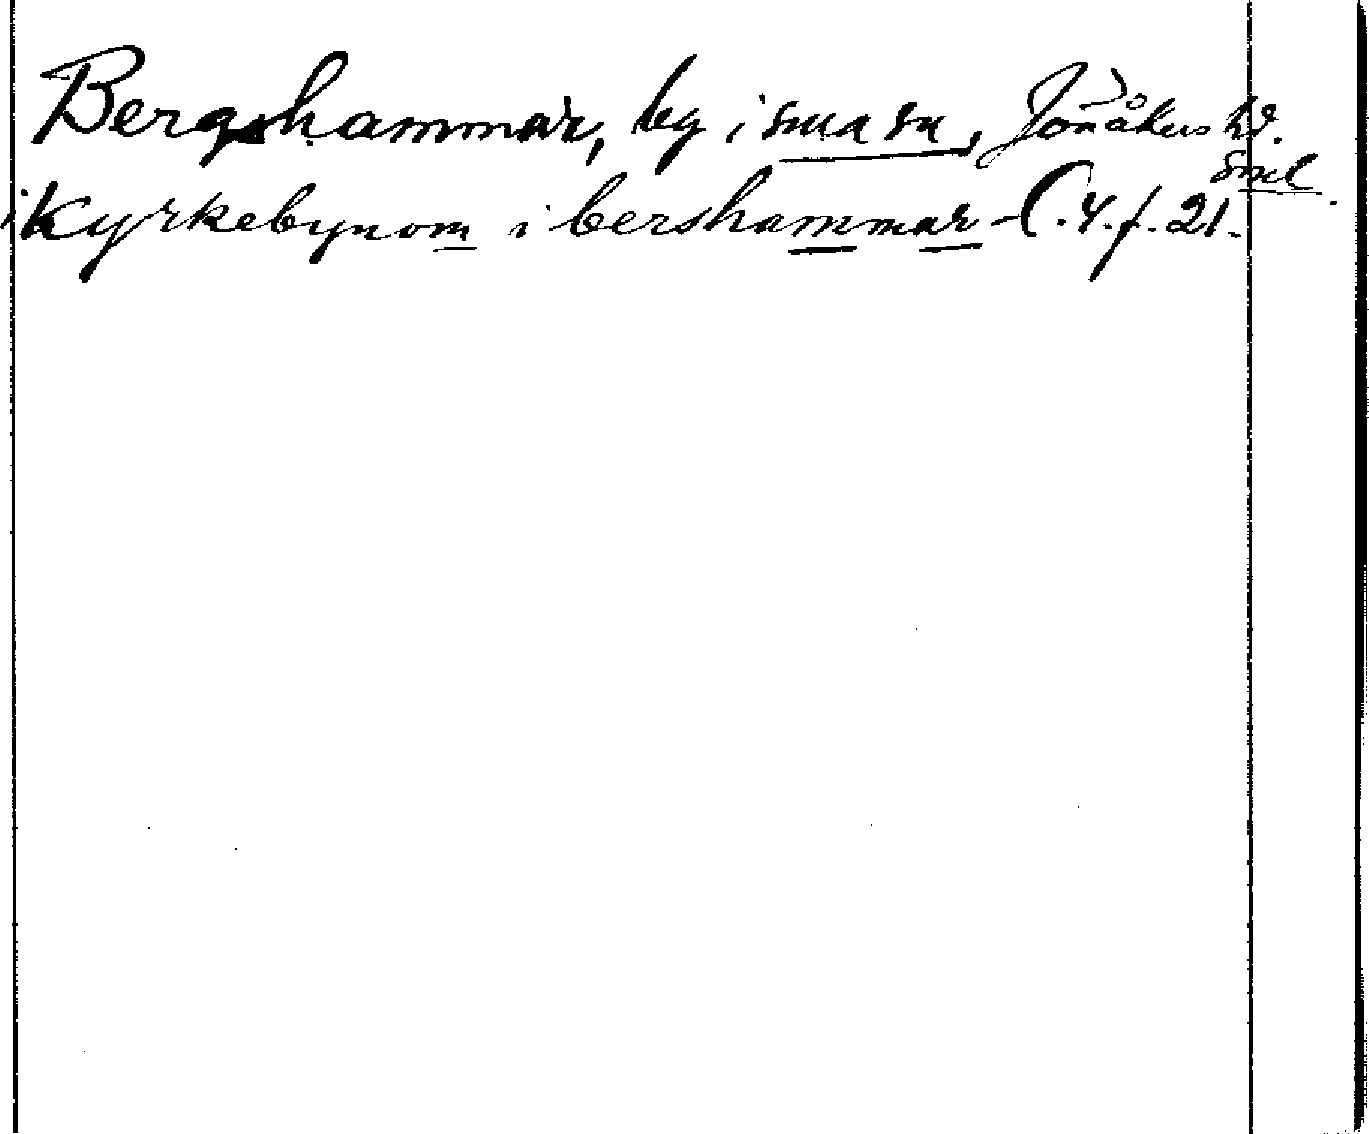 Bergshammar, by i sma sn, Jönåkers hd.
Sml.
i kyrkebynom i bershammar - C. 4. f. 21.